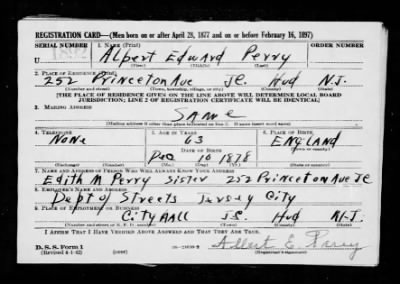 REGISTRATION CARD—(Men born on or after April 28, 1877 and on or before February 16, 1897)
SERIAL NUMBER 1. NAME (Print) ORDER NUMBER
Albert Edward Perry
(First) (Middle) (Last)
2. PLACE OF RESIDENCE (Print)
252 Princeton Ave J.C. Hud N.J.
(Number and street) (Town, township, village, or city) (County) (State)
[THE PLACE OF RESIDENCE GIVEN ON THE LINE ABOVE WILL DETERMINE LOCAL BOARD
JURISDICTION; LINE 2 OF REGISTRATION CERTIFICATE WILL BE IDENTICAL]
3. MAILING ADDRESS
SAME
[Mailing address if other than place indicated on line 2. If same insert word same]
4. TELEPHONE 5. AGE IN YEARS 6. PLACE OF BIRTH
NONE 63 ENGLAND
DATE OF BIRTH (Town or county)
Dec 10 1878
(Exchange) (Number) (Mo.) (Day) (Yr.) (State or country)
7. NAME AND ADDRESS OF PERSON WHO WILL ALWAYS KNOW YOUR ADDRESS
Edith M Perry Sister 252 Princeton Ave J.C.
8. EMPLOYER'S NAME AND ADDRESS
Dept of Streets Jersey City
9. PLACE OF EMPLOYMENT OR BUSINESS
City Hall J.C. Hud N.J.
(Number and street or R. F. D. number) (Town) (County) (State)
I AFFIRM THAT I HAVE VERIFIED ABOVE ANSWERS AND THAT THEY ARE TRUE.
D. S. S. Form 1
(Revised 4-1-42) (over) Albert E. Perry
(Registrant's signature)